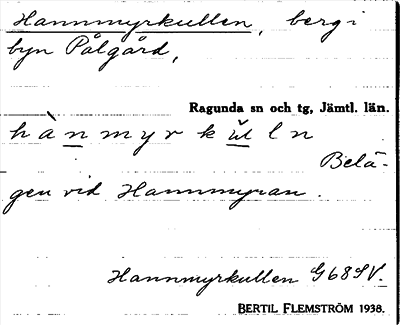 Hannmyrkullen, berg i
byn Pålgård,
Ragunda sn och tg, Jämtl. län.
hànmyrkŭln
Belä-
gen vid Hannmyran.
Hannmyrkullen G68SV.
BERTIL FLEMSTRÖM 1938.